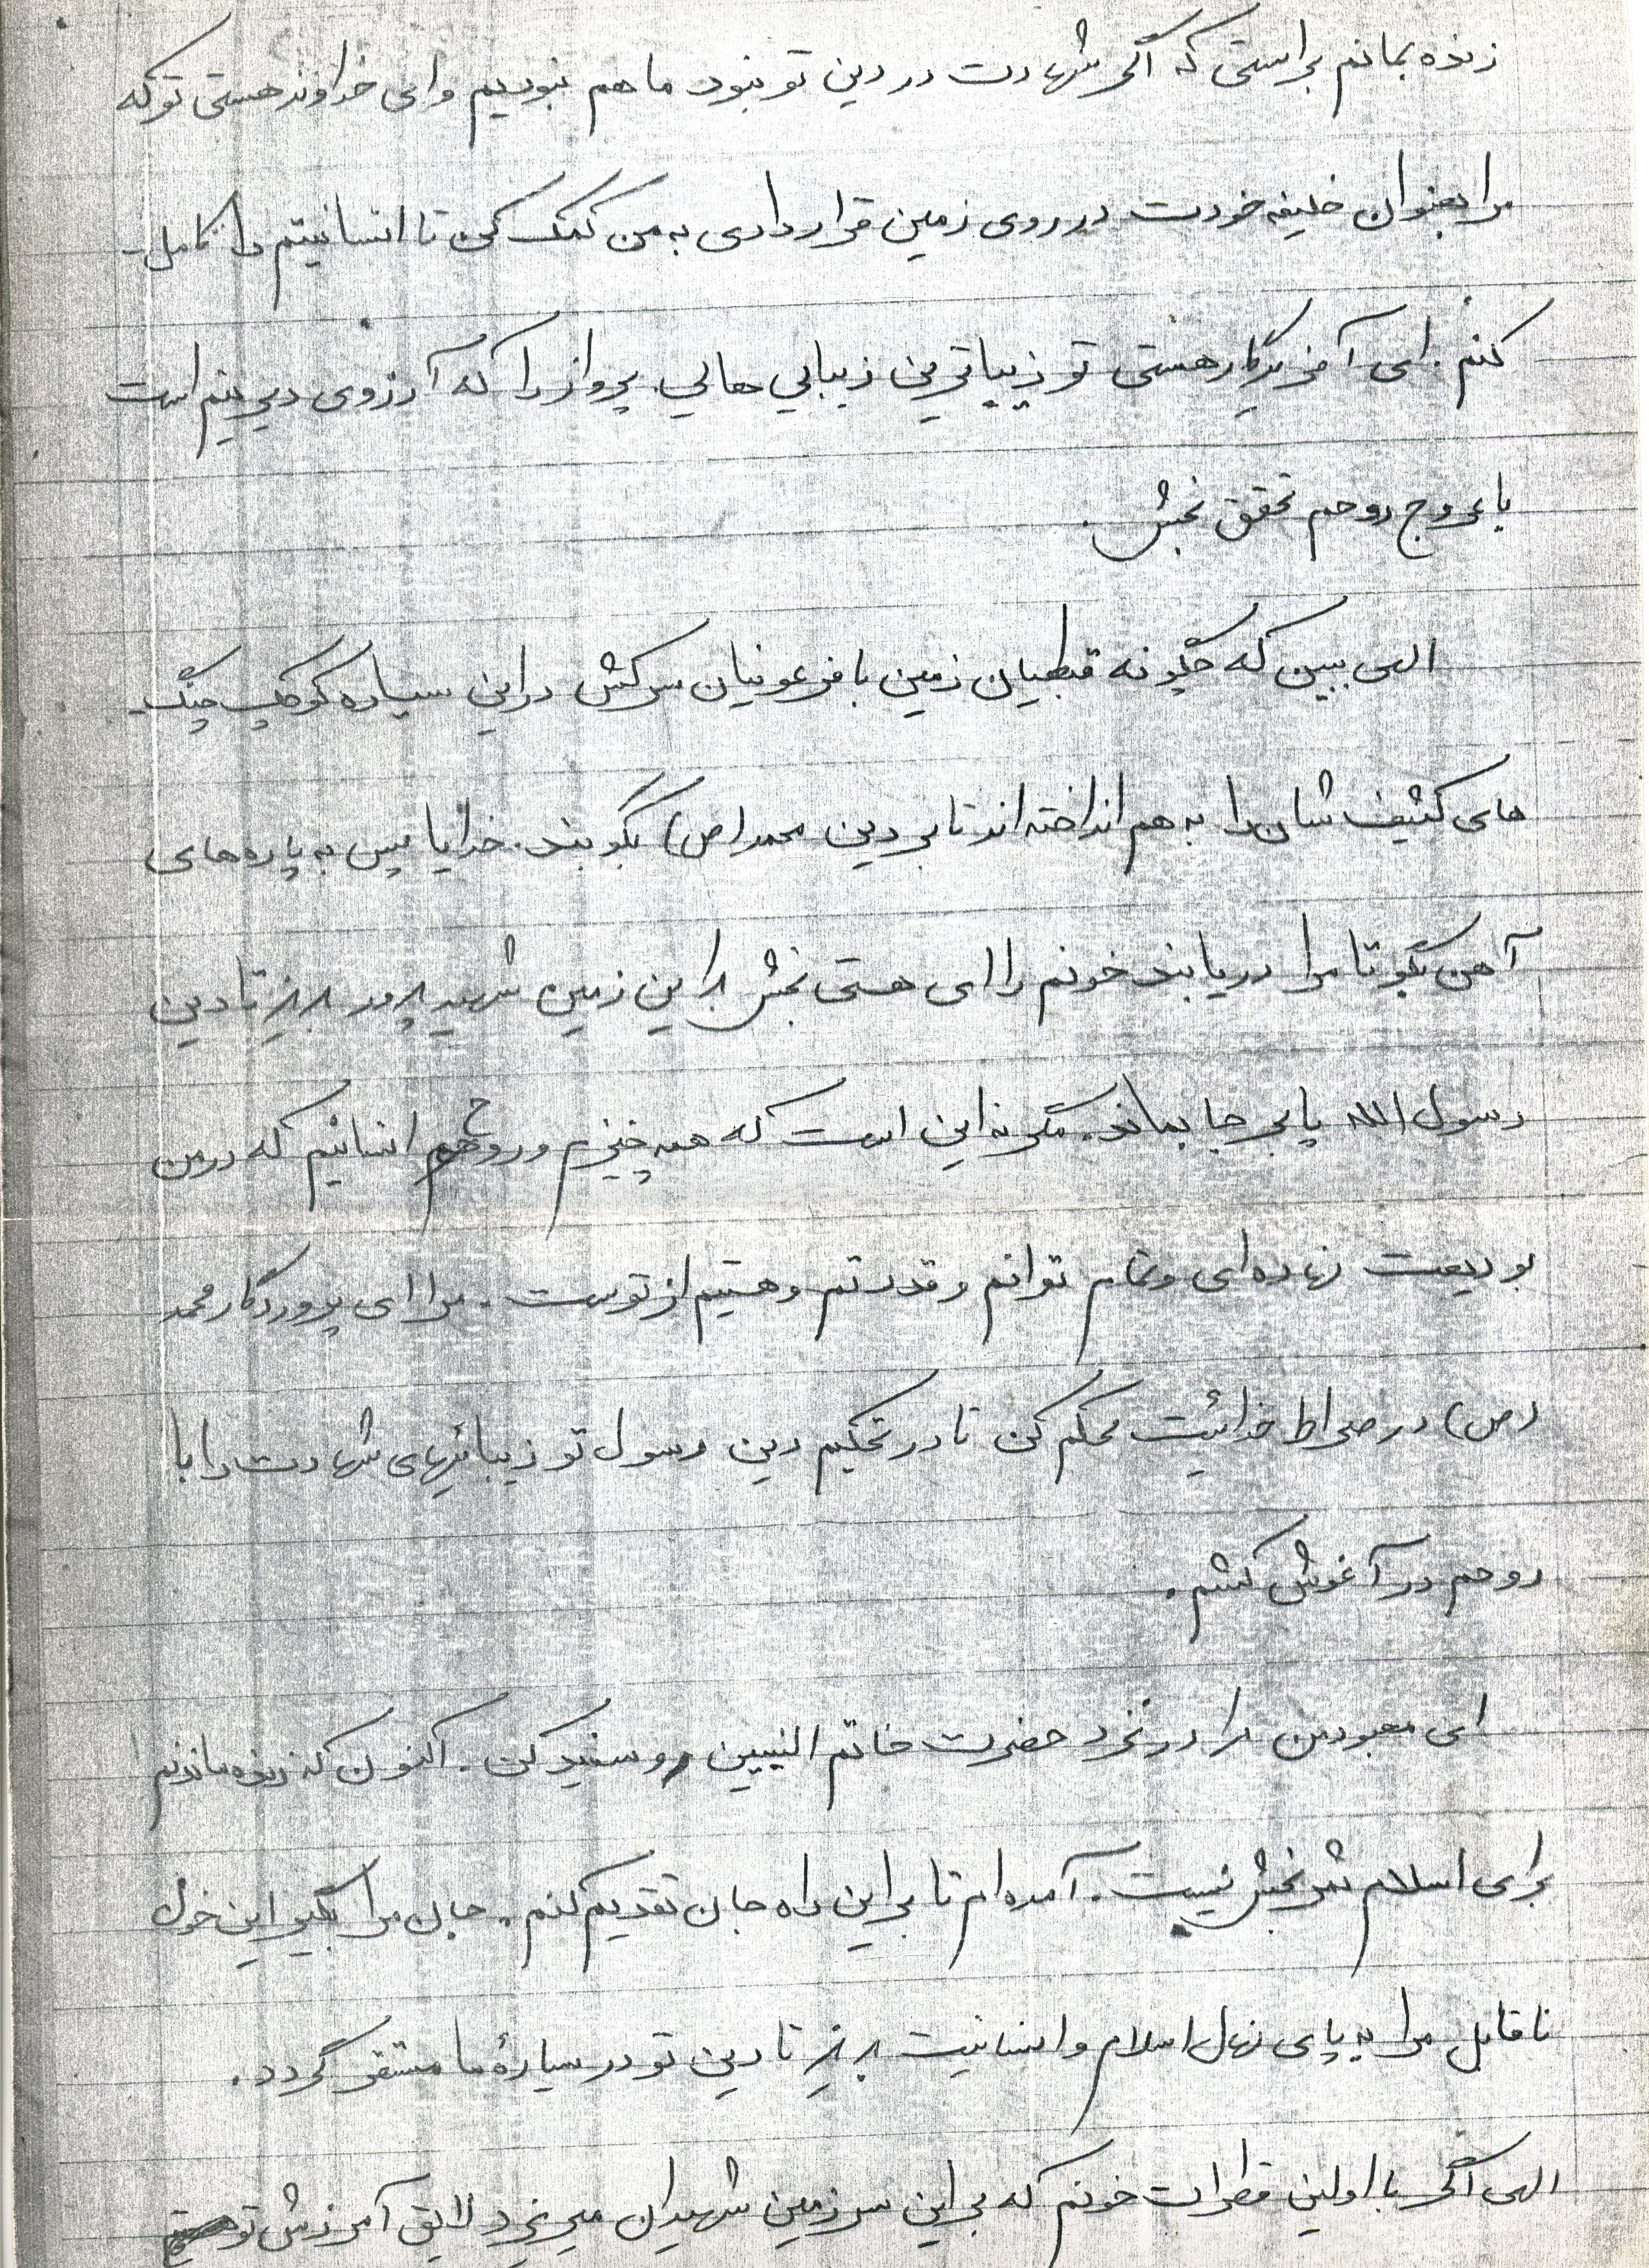 زنده بمانم براستی که اگر شهادت در دین تو نبود ما هم نبودیم وای خداوند هستی تو که
مرا بعنوان خلیفه خودت در روی زمین قرار دادی به من کمک کن تا انسانیتم را کامل-
کنم. ای آفریدگار هستی تو زیباترین زیبایی هایی. پرواز را که آرزوی دیرینم است
با عروج روحم تحقق بخش.
الهی ببین که چگونه قبطیان زمین با فرعونیان سرکش در این سیاره کوچک چنگ-
های کثیف شان را به هم انداخته اند تا بر دین محمد (ص) بکوبند. خدایا پس به پاره های
آهن بگو تا مرا دریابند خونم را ای هستی بخش بر این زمین شهید پرور بریز تا دین
رسول الله پابرجا بماند. مگر نه این است که همه چیزم و روحم انسانیم که در من
بودیعت نهاده ای و تمام توانم و قدرتم و هستیم از توست. مرا ای پروردگار محمد
(ص) در صراط خدائیت محکم کن تا در تحکیم دین رسول تو زیبائیهای شهادت را با
روحم در آغوش کشم.
ای معبود من مرا در نزد حضرت خاتم النبیین رو سفید کن. اکنون که زنده ماندنم
برای اسلام ثمر بخش نیست. آمده ام تا بر این راه جان تقدیم کنم. جان مرا بگیر این خون
ناقابل مرا به پای نهال اسلام و انسانیت بریز تا دین تو در سیارۀ ما مستقر گردد.
الهی اگر با اولین قطرات خونم که بر این سرزمین شهیدان میریزد لایق آمرزش تو